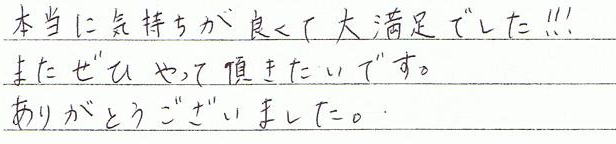 本当に気持ちが良くて大満足でした!!!
またぜひやって頂きたいです。
ありがとうございました。